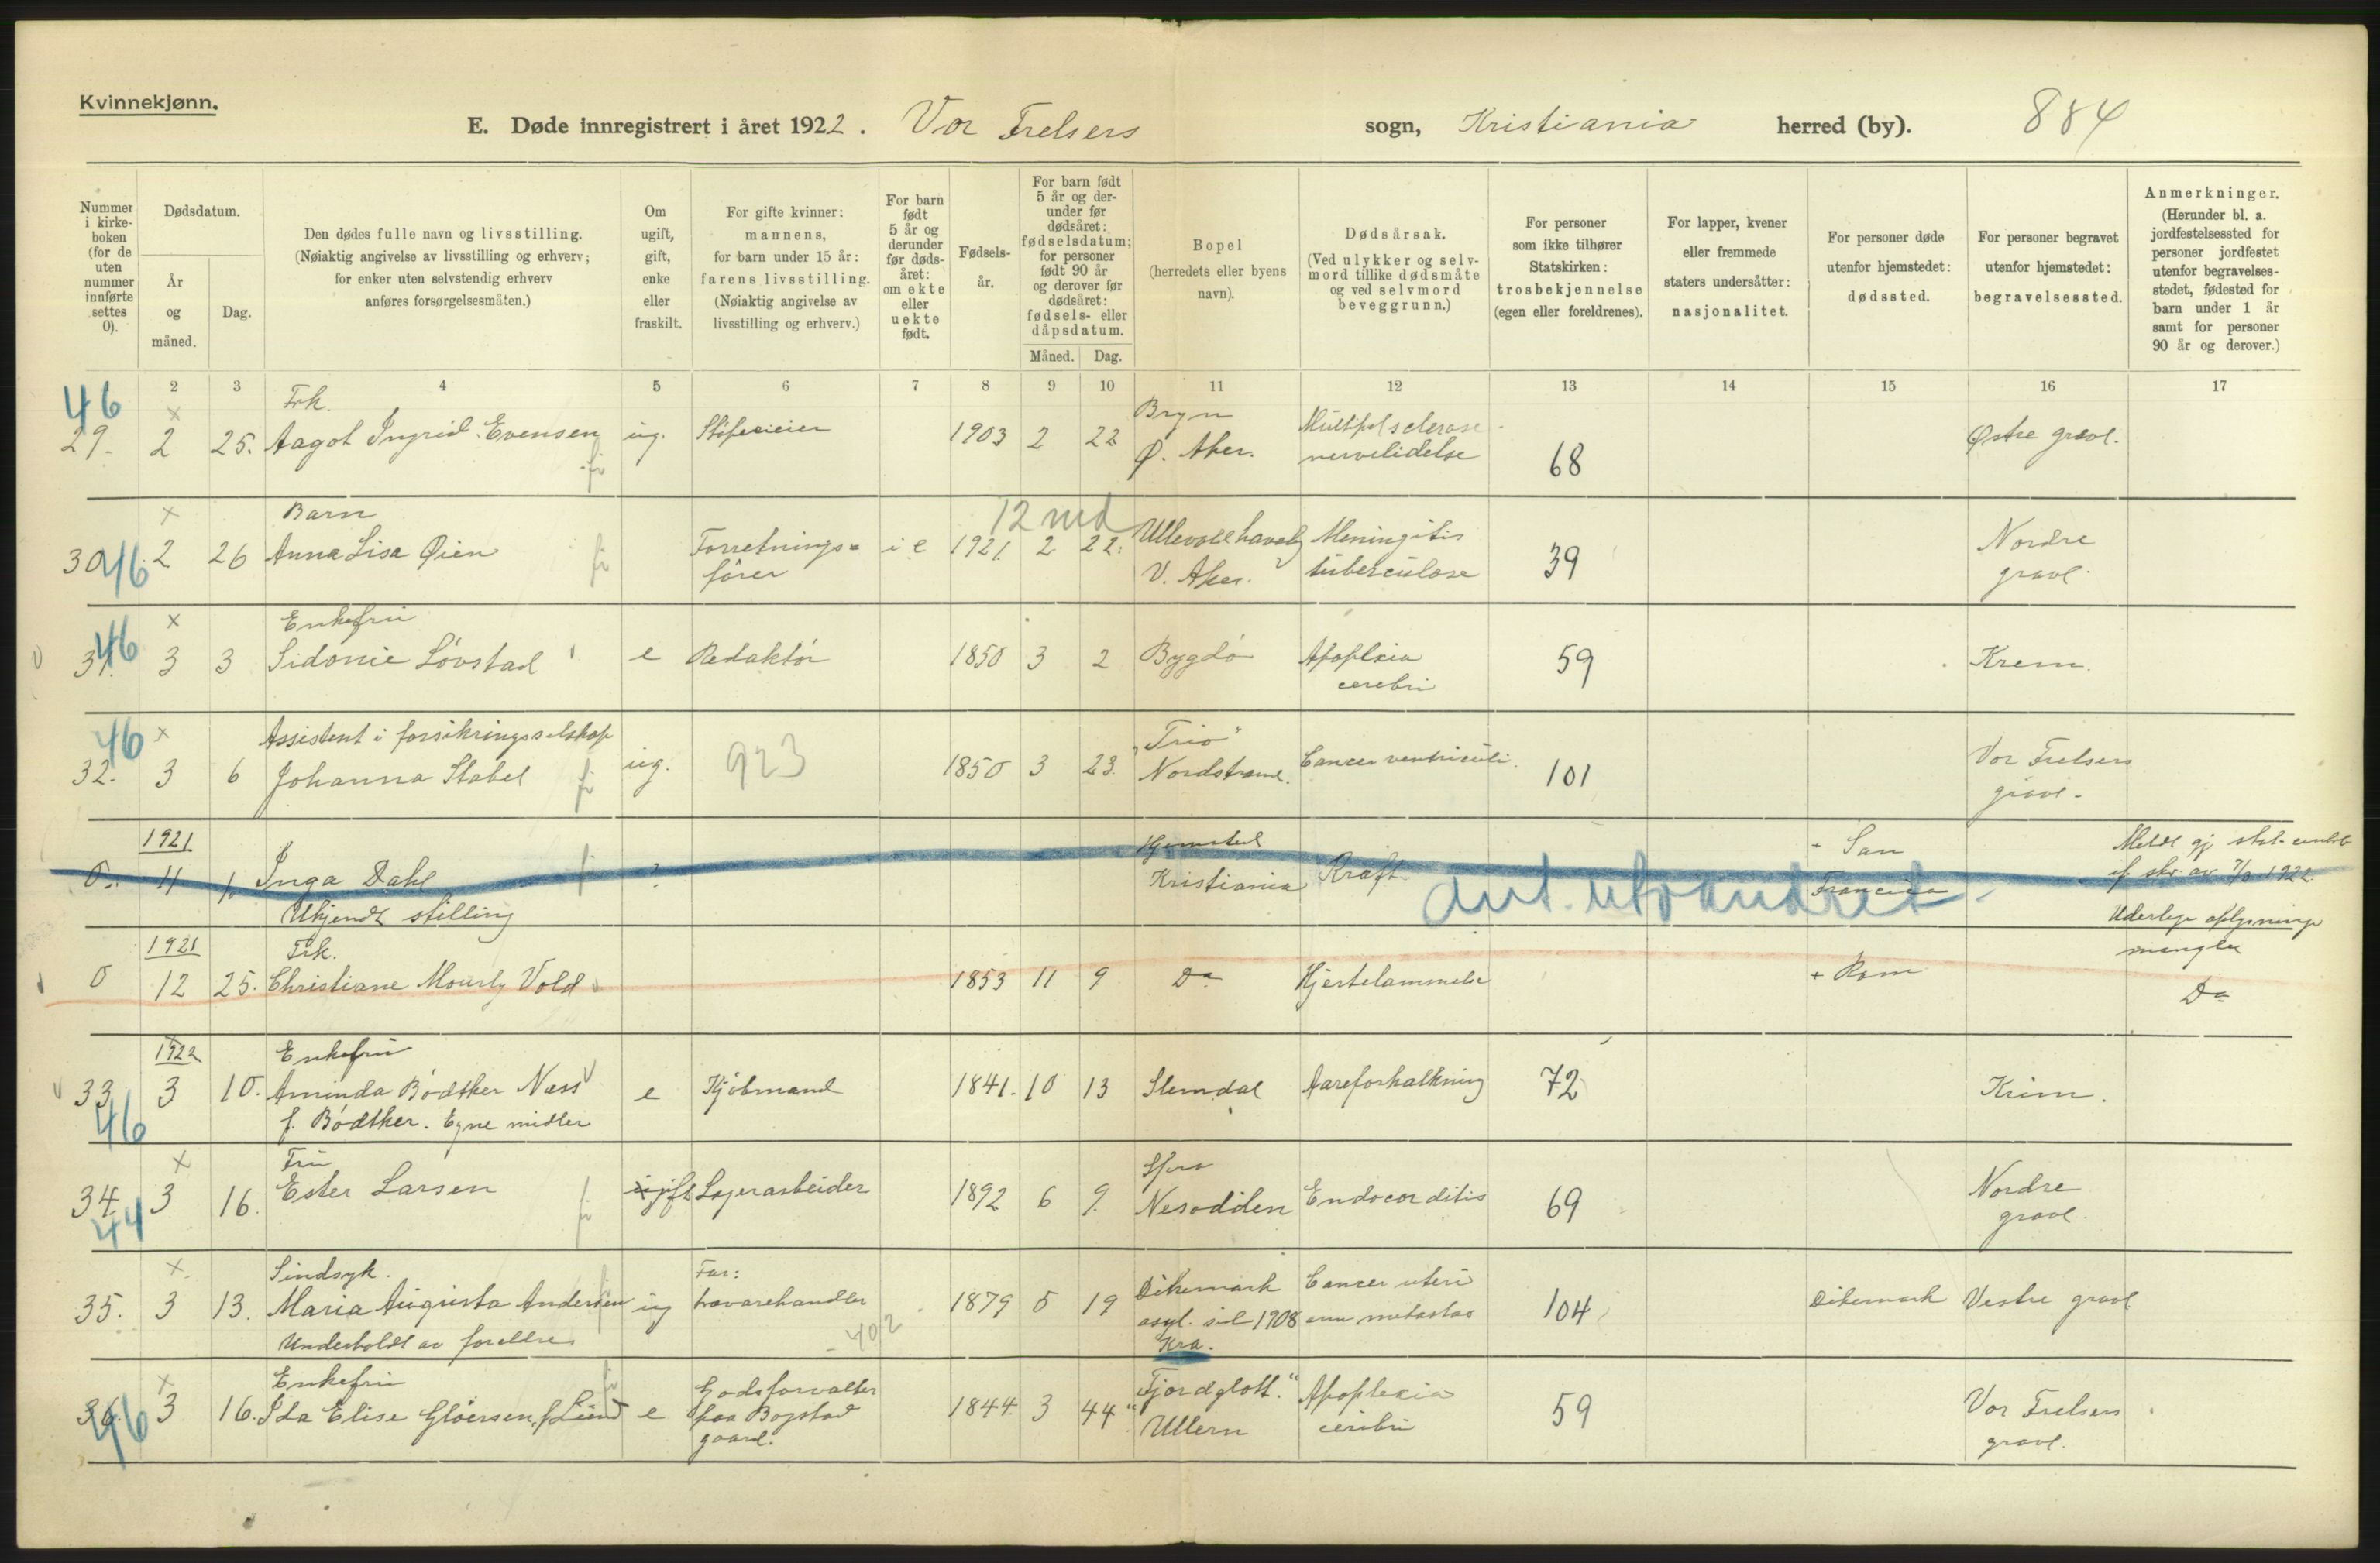 Kvinnekjønn.
E. Døde innregistrert i året 1922. Vor Frelsers sogn, Kristiania herred (by). 884
Nummer i kirkeboken (for de uten nummer innførte settes 0).
Dødsdatum.
År og måned.
Dag.
Den dødes fulle navn og livsstilling.
(Nøiaktig angivelse av livsstilling og erhverv;
for enker uten selvstendig erhverv
anføres forsørgelsesmåten.)
Om ugift, gift, enke eller fraskilt.
For gifte kvinner:
mannens,
for barn under 15 år:
farens livsstilling.
(Nøiaktig angivelse av
livsstilling og erhverv.)
For barn født 5 år og derunder før dødsåret: om ekte eller uekte født.
Fødselsår.
For barn født 5 år og derunder før dødsåret: fødselsdatum; for personer født 90 år og derover før dødsåret: fødsels- eller dåpsdatum.
Måned. Dag.
Bopel
(herredets eller byens
navn).
Dødsårsak.
(Ved ulykker og selvmord tillike dødsmåte og ved selvmord beveggrunn.)
For personer
som ikke tilhører
Statskirken:
trosbekjennelse
(egen eller foreldrenes).
For lapper, kvener
eller fremmede
staters undersåtter:
nasjonalitet.
For personer døde
utenfor hjemstedet:
dødssted.
For personer begravet
utenfor hjemstedet:
begravelsessted.
Anmerkninger.
(Herunder bl. a.
jordfestelsessted for
personer jordfestet
utenfor begravelsesstedet, fødested for
barn under 1 år
samt for personer
90 år og derover.)
2 3 4 5 6 7 8 9 10 11 12 13 14 15 16 17
46 x Frk. Bryn Multipel sclerose
29. 2 25. Aagot Ingrid Evensen ug. 1903 2 22 Ø. Aker. nervelidelse 68 Østre gravl.
x Barn 12 md
30 46 2 26 Anna Lisa Øien Forretnings= e 1921 2 22. Ullevoll Meningitis 39 Nordre
fører V. Aker. tuberculose gravl.
x Enkefru
31. 46 3 3 Sidonie Løvstad e Redaktør 1850 3 2 Bygdø Apoplexia 59 Krem.
cerebri
46 x Assistent i forsikringsselskap "Trio"
32. 3 6 Johanna Stabel ug. 923 1850 3 23. Nordstrand. Cancer ventriculi. 101 Vor Frelsers
gravl.
1921 Hjemsted + San Meldt gj.
0. 11 1. Inga Dahl ? Kristiania Kræft. ant. utvandret Francisco skr. av 7/3 1922.
Ukjendt stilling Yderligere oplysninger
mangler
1921 Frk.
0 12 25. Christiane Mourly Vold 1853 11 9 Do Hjertelammelse + Rom Do
1922 Enkefru
33 46 3 10. Aminda Bødtker Næss e Kjøbmand 1841. 10 13 Slemdal Aareforkalkning 72 Krem.
f. Bødtker. Egne midler
x Fru
34. 44 3 16. Ester Larsen gift Lagerarbeider 1892 6 9. Nesodden Endocarditis 69 Nordre
gravl.
x Sindsyk. Far:
35. 3 13. Maria Augusta Andersen ug trævarehandler 1879 5 19 Dikemark Cancer uteri 104 Dikemark Vestre gravl
Underholdt av foreldre 402 asyl. 1908 cum metastas
Kra.
x Enkefru Godsforvalter "Fjordgløtt." Apoplexia
36. 46 3 16. Ida Elise Gløersen f. Lund e paa Bogstad 1844 3 44 Ullern cerebri 59 Vor Frelsers
gaard. gravl.